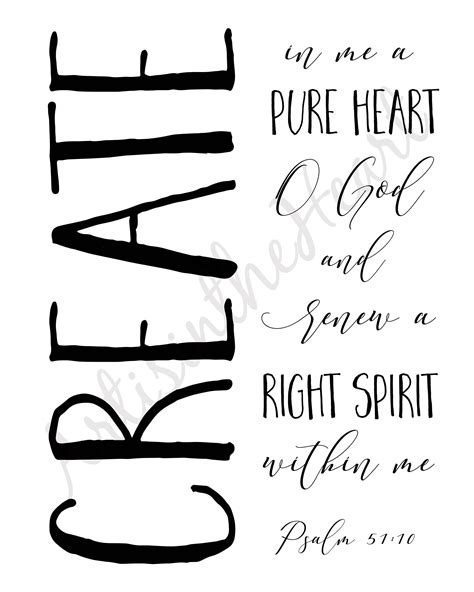 CREATE
in me a
PURE HEART
O God
and
renew a
RIGHT SPIRIT
within me
Psalm 51:10
ArtisintheHeart